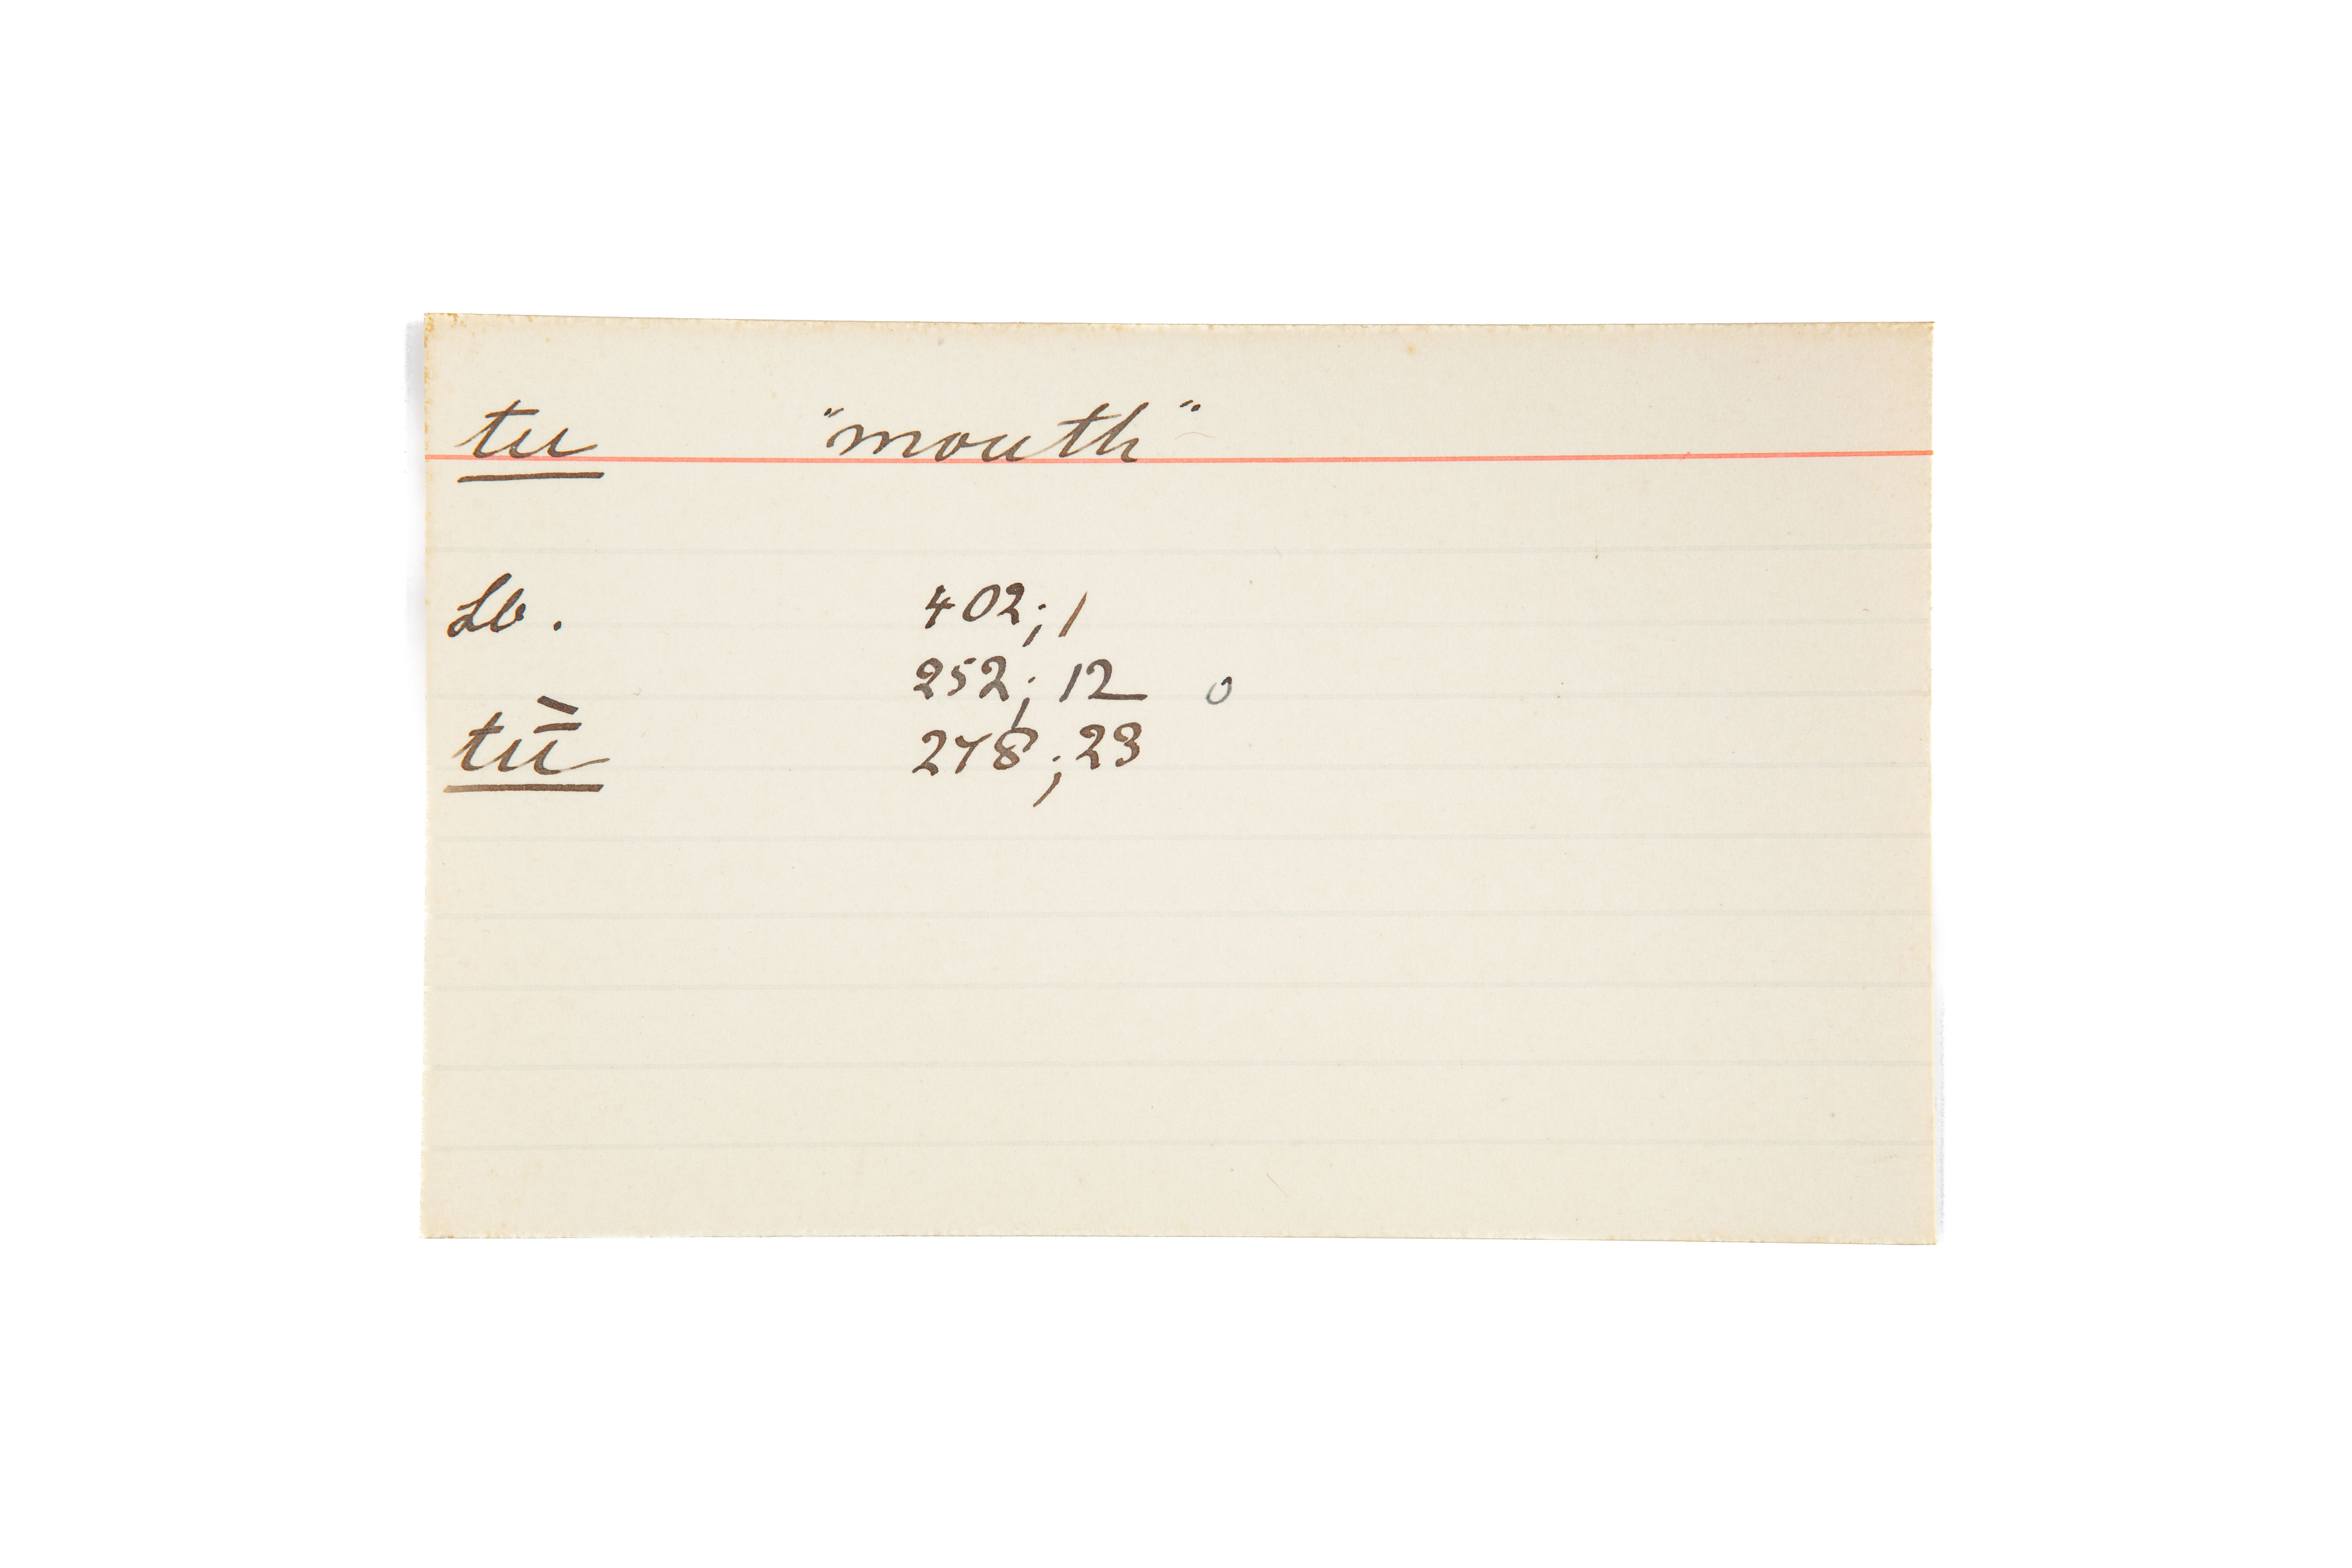 tu "mouth"
Lb. 402; 1
252; 12 o
tū̀ 278; 23